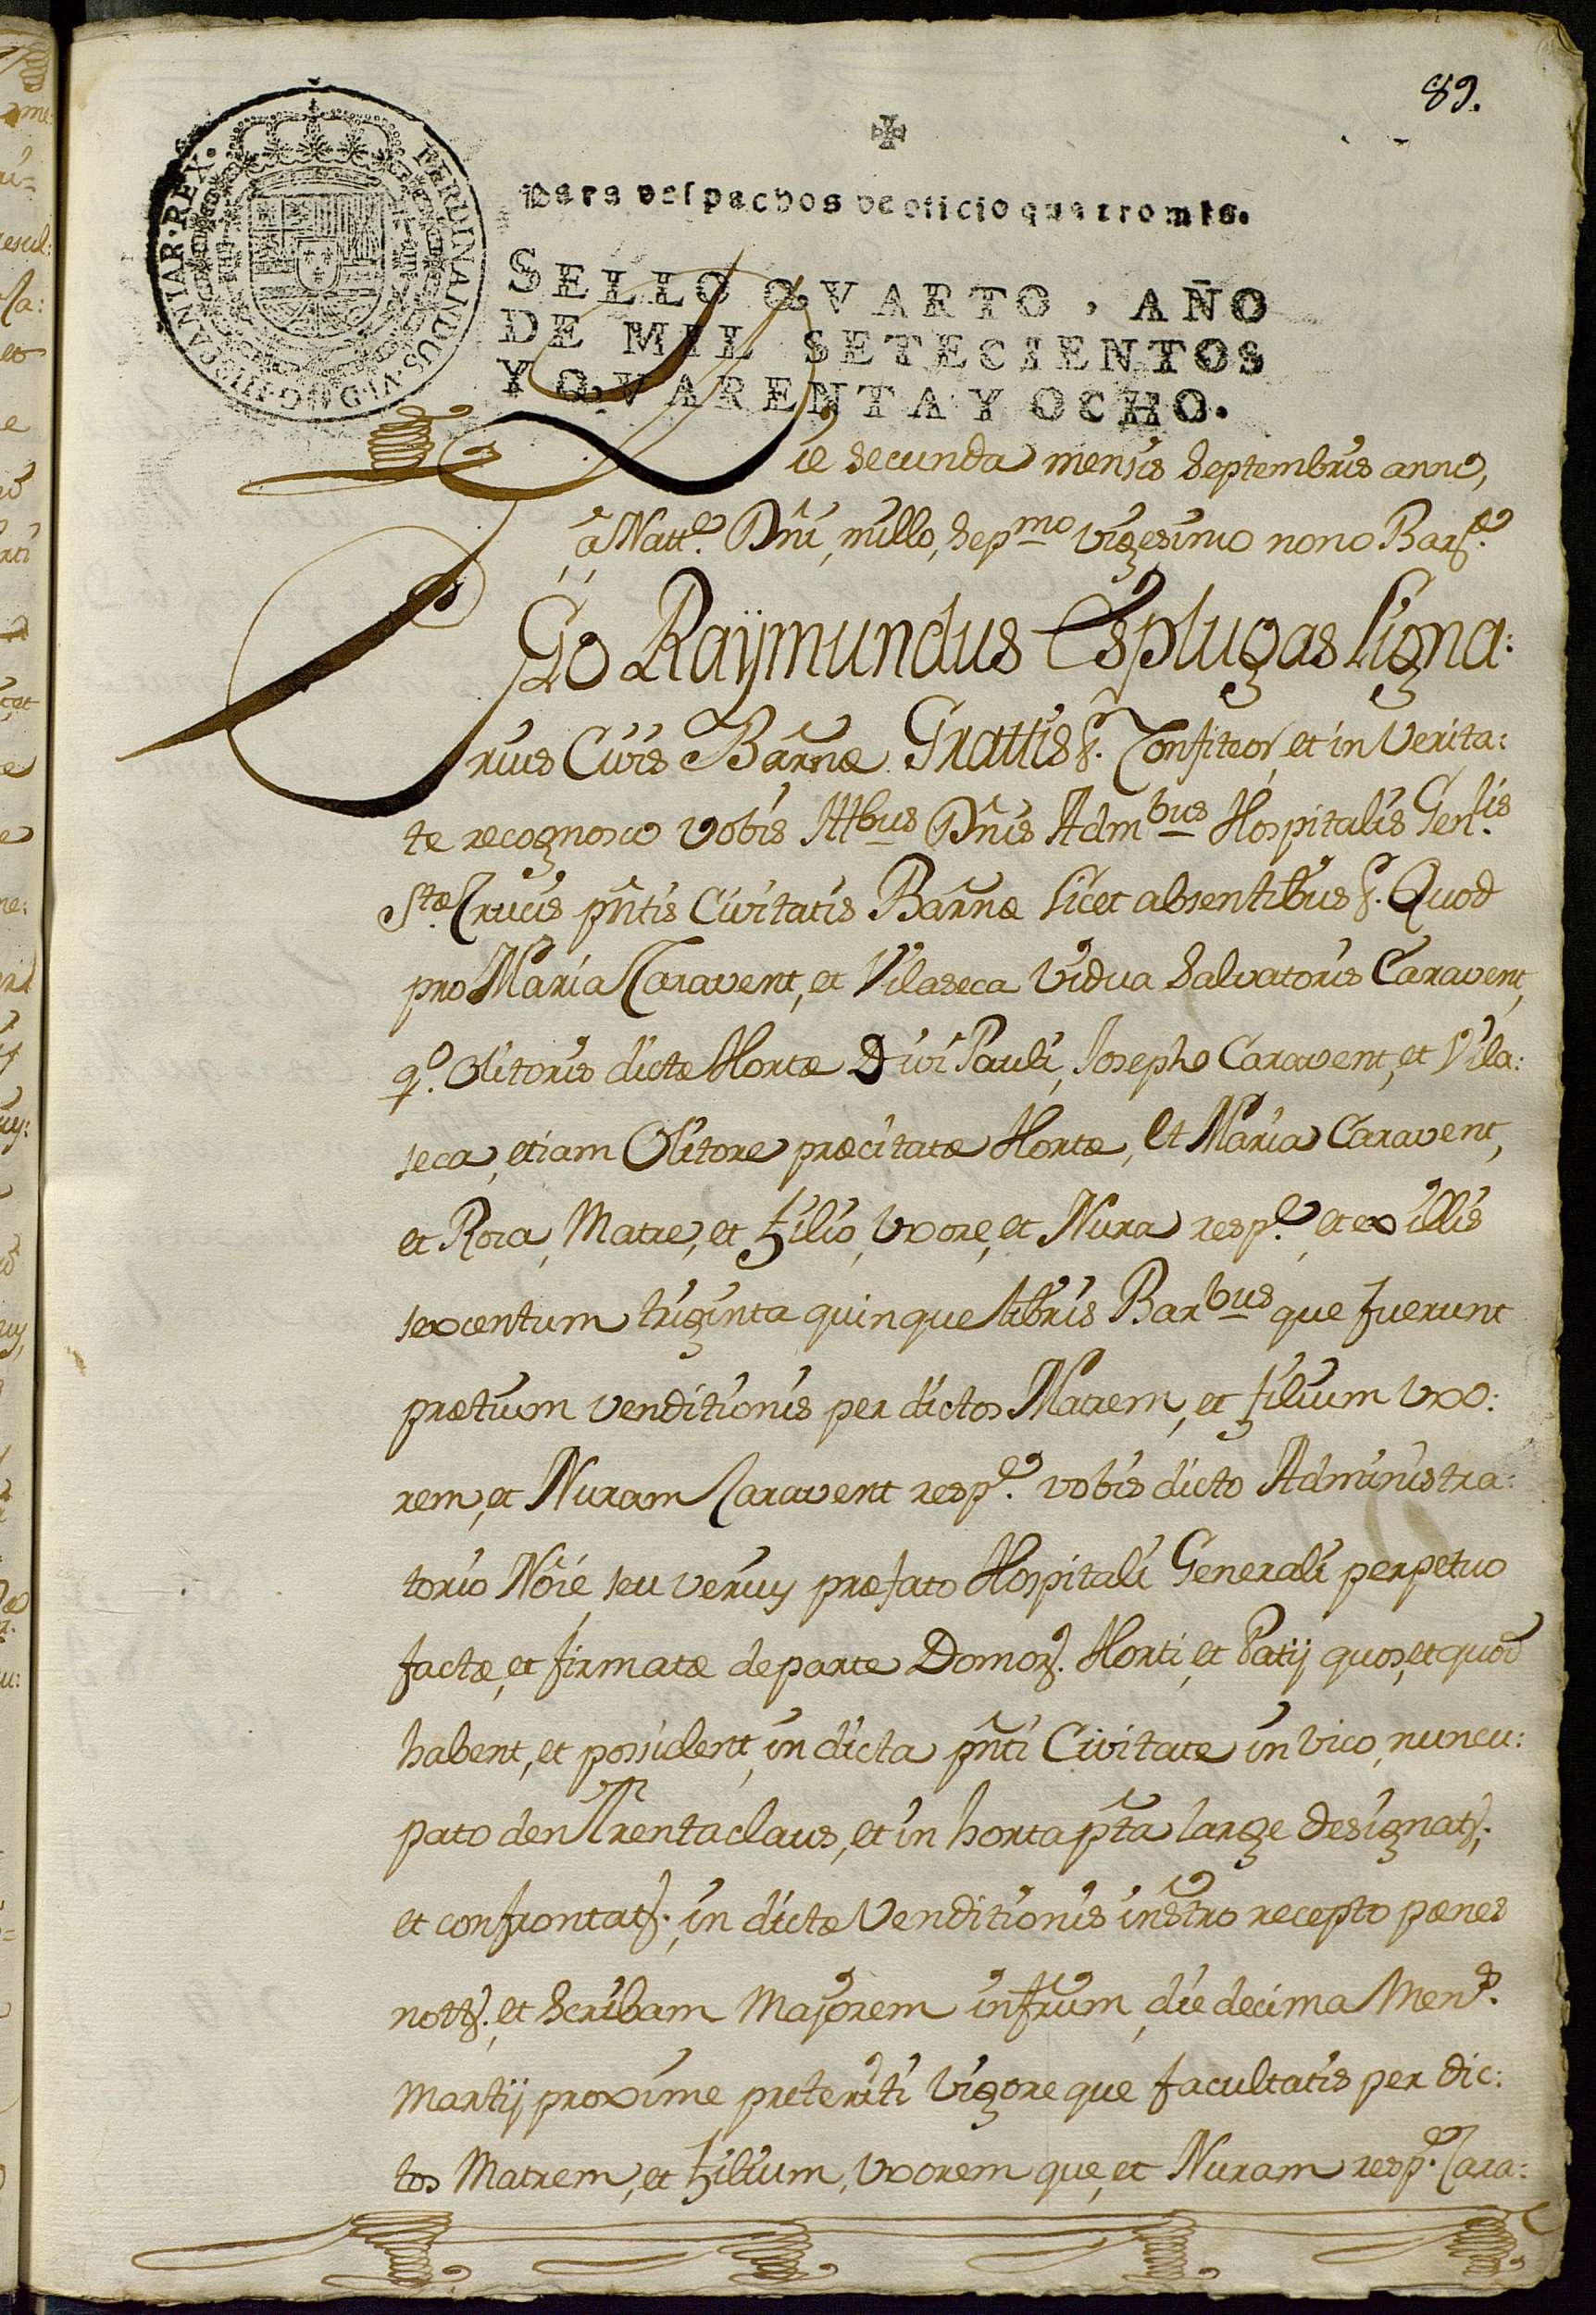 89.
FERDINANDUS·VI·D·G·HISPANIAR·REX·
Para despachos de oficio quatro mrs.
SELLO QVARTO, AÑO
DE MIL SETECIENTOS
Y QVARENTA Y OCHO.
Die Secunda mensis Septembris anno,
â Natt.e Dñi, millo, Sepmo vigesimo nono Bar.e
EGo Raÿmundus Esplugas Ligna:
rius Civis Barñæ Grattis &. Confiteor, et in Verita:
te recognosco vobis Ittbus Dñis Admbus Hospitalis Genlis
Stæ Crucis pñtis Civitatis Barñæ licet absentibus &. Quod
pro Maria Caravent, et Vilaseca Vidua Salvatoris Caravent,
q.o Olitoris dictæ Hortæ Divi Pauli, Josepho Caravent, et Vila:
seca, etiam Olitore præcitatæ Hortæ, Et Maria Caravent,
et Roca, Matre, et Filio, Uxore, et Nura resp.e et ex illis
sexcentum triginta quinque libris Barbus que fuerunt
prætium venditionis per dictos Matrem, et filium Uxo:
rem, et Nuram Caravent resp.e vobis dicto Administra:
torio Nõie seu verius præfato Hospitali Generali perpetuo
factæ, et firmatæ de parte Domor. Horti, et Patij quos, et quod
habent, et possident, in dicta pñti Civitate in vico, nuncu:
pato den Trentaclaus, et in horta pta large designat.
et confrontat. in dictæ Venditionis instro recepto pænes
nott. et Scribam Majorem infrum, die decima Men.s
Martij proxime preteriti Vigore que facultatis per dic:
tos Matrem, et Filium, Uxorem que, et Nuram resp.e Cara: